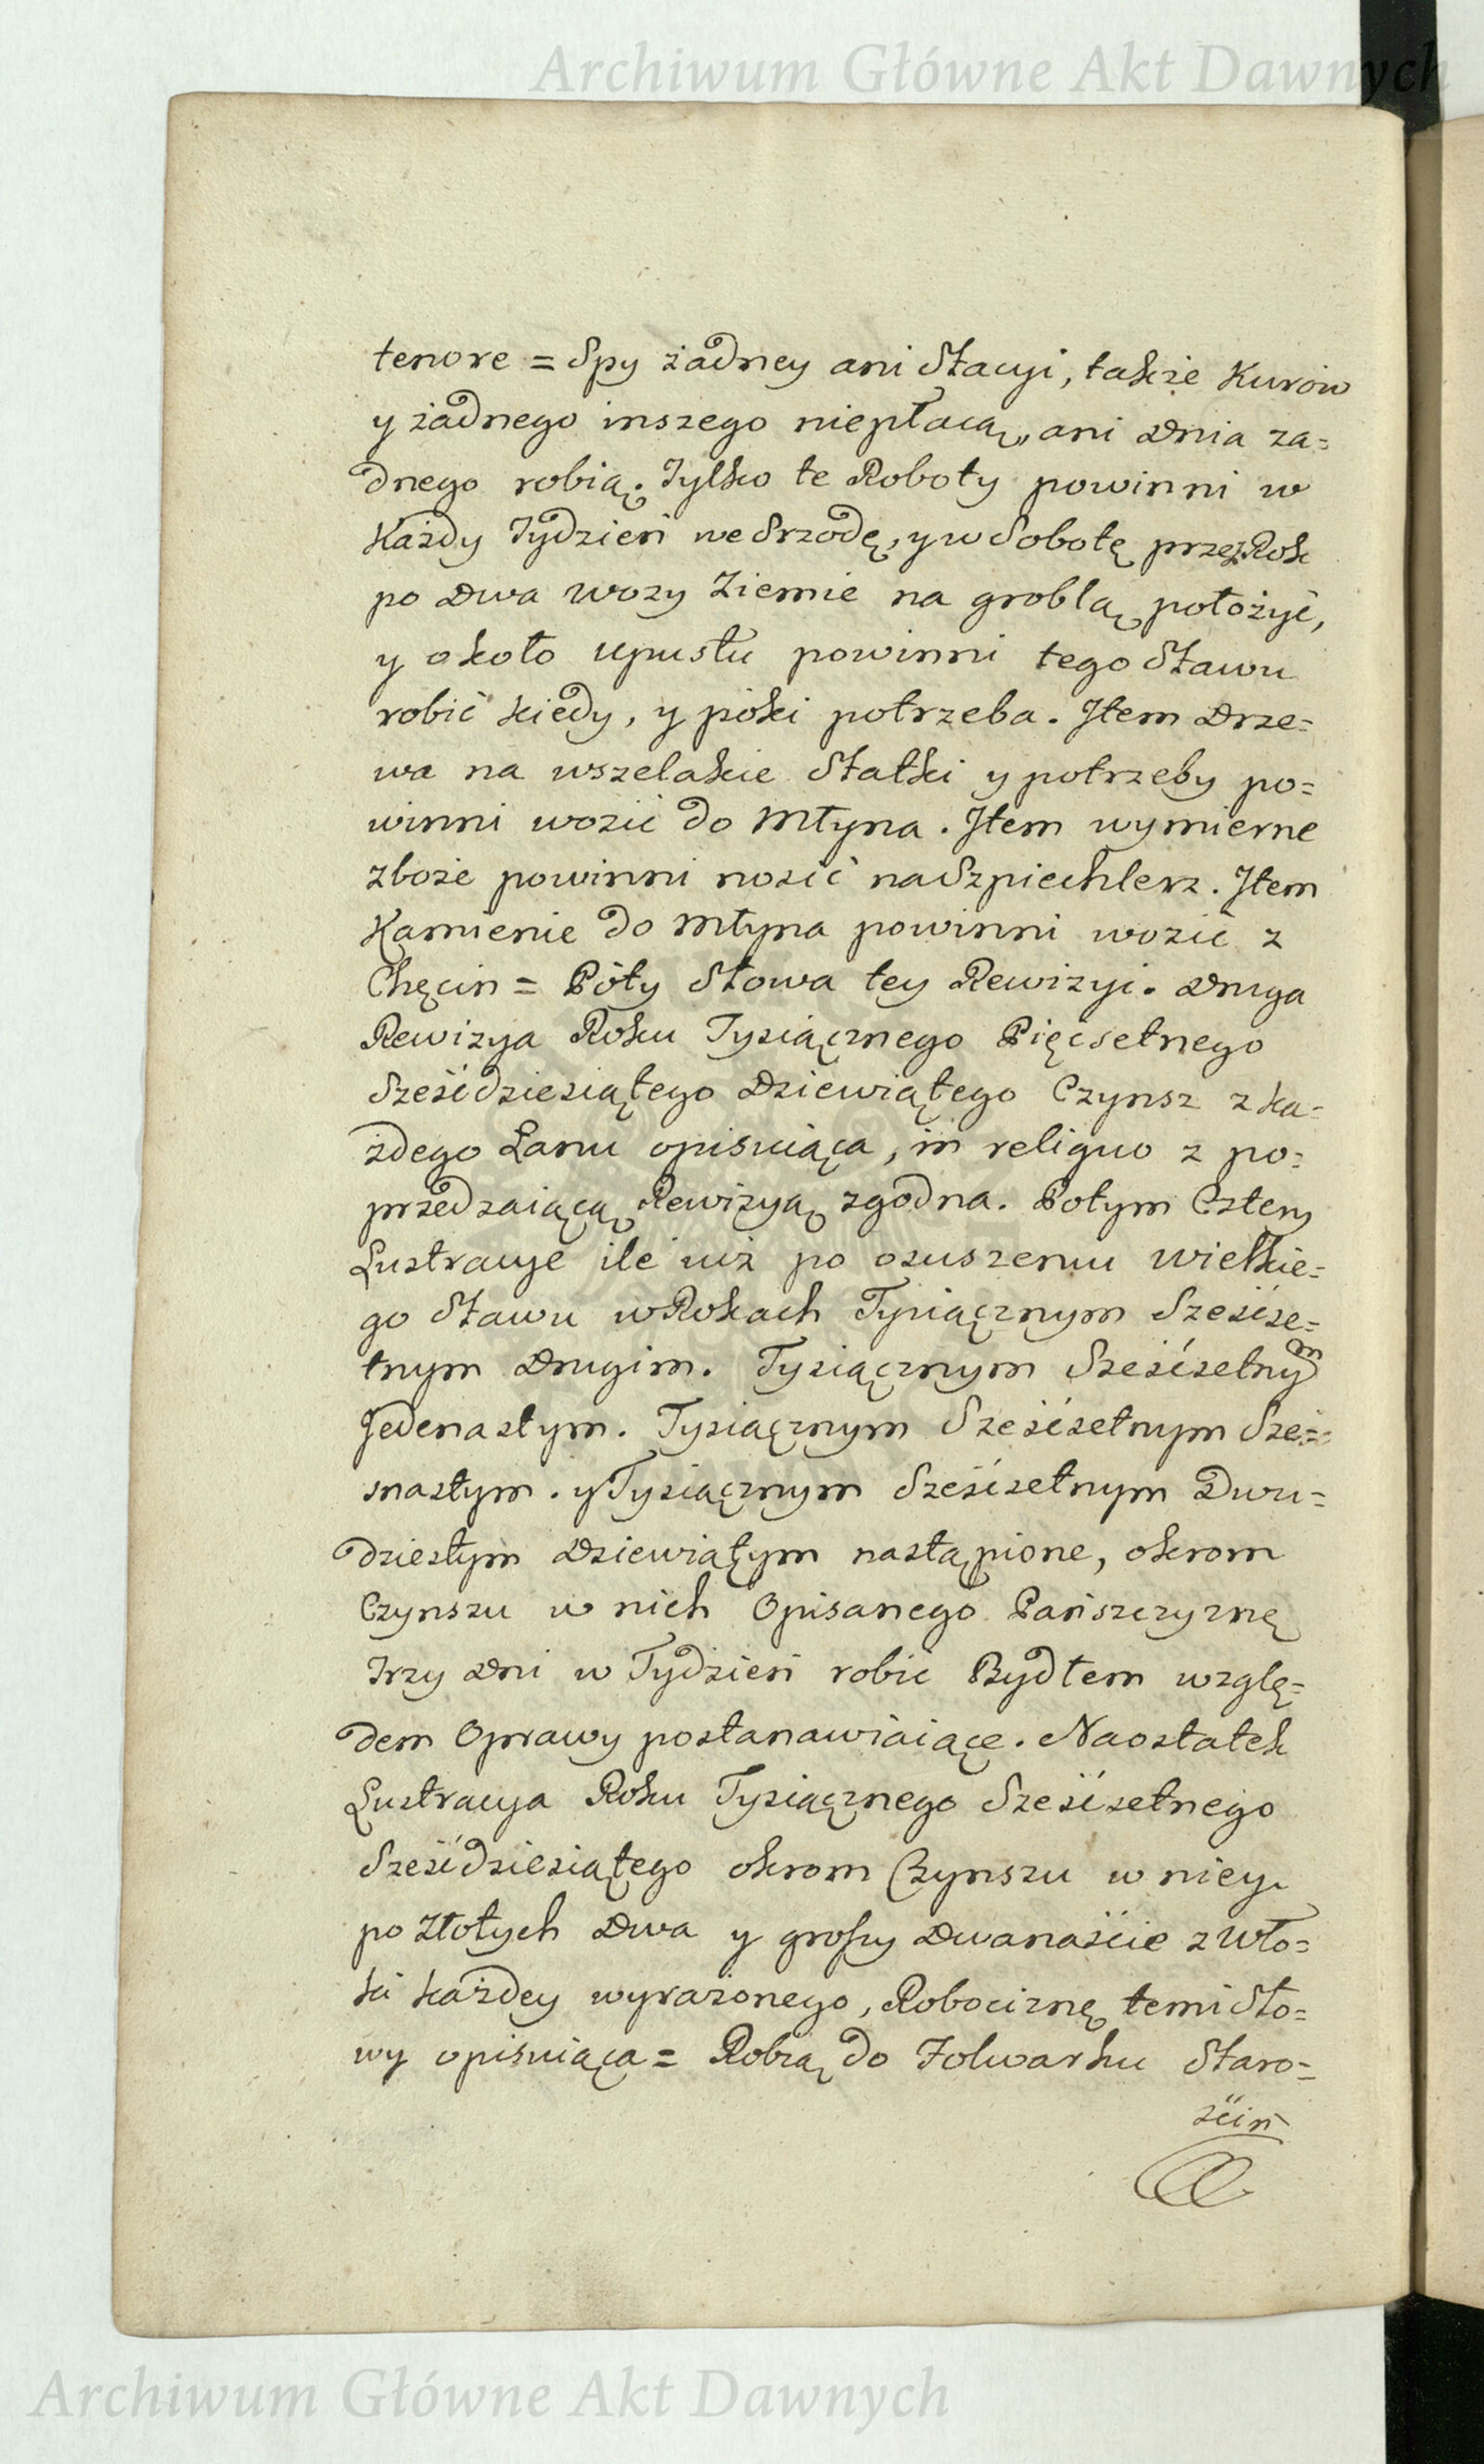 Archiwum Główne Akt Dawnych
tenore = Spy żadney ani Stacyi, także Kurów
y żadnego inszego niepłacą, ani Dnia ża=
dnego robią. Tylko te Roboty powinni w
Każdy Tydzień we Srzodę, y w Sobotę przez Rok
po Dwa wozy Ziemie na groblą położyć,
y około upustu powinni tego Stawu
robić kiedy, y póki potrzeba. Item Drze=
wa na wszelakie Statki y potrzeby po=
winni wozić do Młyna. Item wymierne
zboże powinni nosić na Szpiechlerz. Item
Kamienie do Młyna powinni wozić z
Chęcin = Póty Słowa tey Rewizyi. Druga
Rewizya Roku Tysiącznego Pięćsetnego
Sześćdziesiątego Dziewiątego Czynsz z ka=
żdego Łanu opisuiąca, in reliquo z po=
przedzaiącą Rewizyą zgodna. Potym Cztery
Lustracye ile iuż po osuszeniu wielkie=
go Stawu w Rokach Tysiącznym Sześćse=
tnym Drugim. Tysiącznym Sześćsetnym
Jedenastym. Tysiącznym Sześćsetnym Sze=
snastym. y Tysiącznym Sześćsetnym Dwu=
dziestym Dziewiątym nastąpione, okrom
Czynszu w nich Opisanego Pańszczyznę
Trzy Dni w Tydzień robić Bydłem wzglę=
dem Oprawy postanawiaiące. Naostatek
Lustracya Roku Tysiącznego Sześćsetnego
Sześćdziesiątego okrom Czynszu w niey
po Złotych Dwa y groszy Dwanaście z Wło=
ki każdey wyrażonego, Robociznę temi Sło=
wy opisuiąca = Robią do Folwarku Staro=
ściń
Archiwum Główne Akt Dawnych